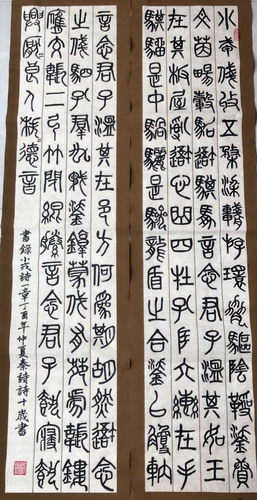 小戎俴收五楘梁輈游環脅驅陰靷鋈續
文茵暢轂駕我騏馵言念君子溫其如玉
在其板屋亂我心曲四牡孔阜六轡在手
騏駵是中騧驪是驂龍盾之合鋈以觼軜
言念君子溫其在邑方何為期胡然我念
之俴駟孔群厹矛鋈錞蒙伐有苑虎韔鏤
膺交韔二弓竹閉緄縢言念君子載寢載
興厭厭良人秩秩德音
書錄小戎詩一章丁酉年仲夏秦詩詩十歲書